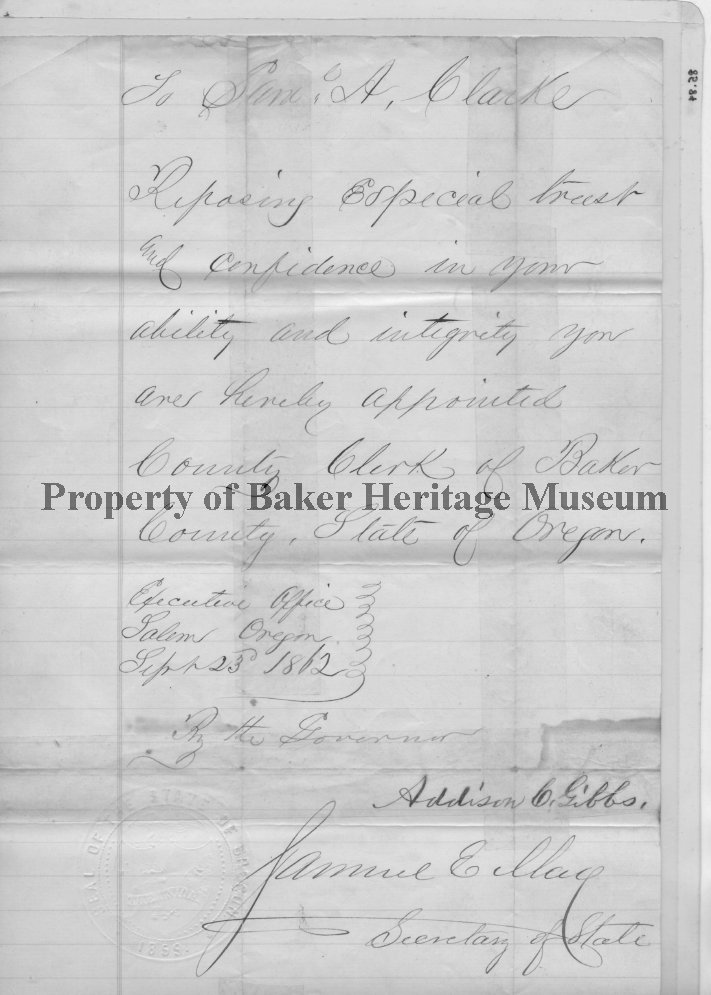 To Saml. A. Clarke
Reposing Especial trust
and confidence in your
ability and integrity you
are hereby appointed
County Clerk of Baker
Property of Baker Heritage Museum
County, State of Oregon.
Executive Office
Salem Oregon
Sept 23d 1862
By the Governor
Addison C. Gibbs.
Samuel E. May
Secretary of State
SEAL OF THE STATE OF OREGON
1859.